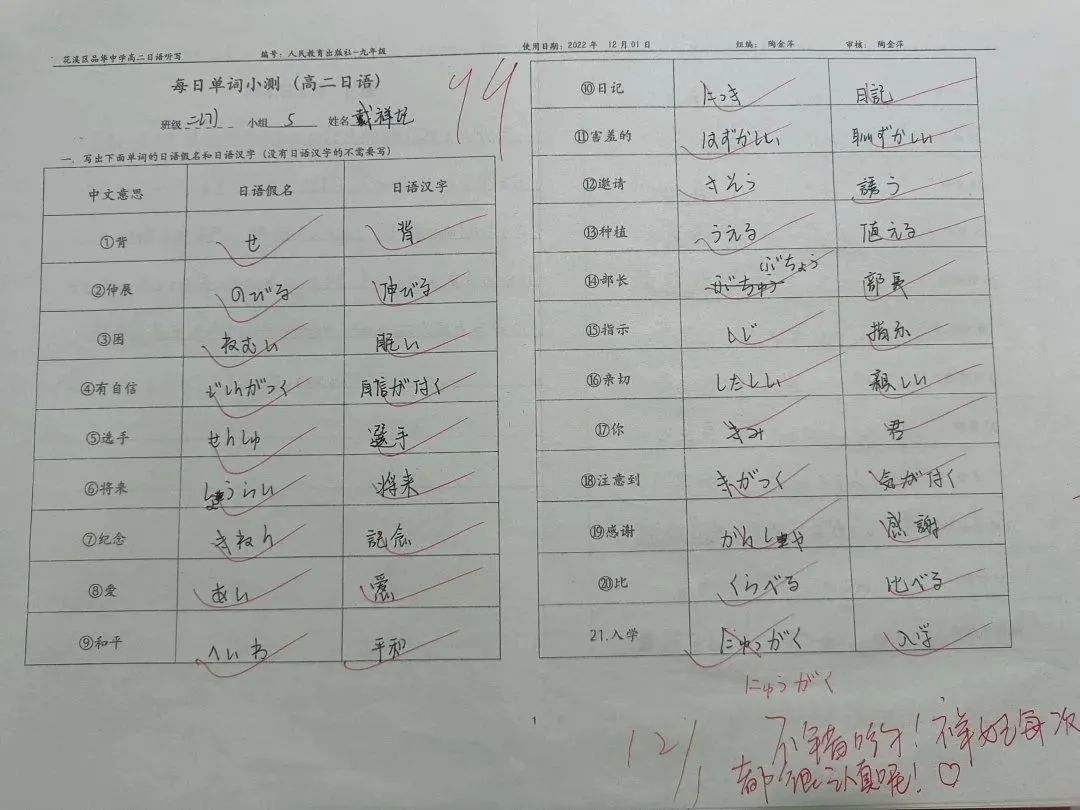 花溪区品华中学高二日语听写 编号：人民教育出版社-九年级 使用日期：2022 年 12 月 01 日 组编： 陶金萍 审核： 陶金萍
每日单词小测（高二日语）
99
班级 二(7) 小组 5 姓名 戴祥
一. 写出下面单词的日语假名和日语汉字（没有日语汉字的不需要写）
中文意思 日语假名 日语汉字
①背 せ 背
②伸展 のびる 伸びる
③困 ねむい 眠い
④有自信 じしんがつく 自信が付く
⑤选手 せんしゅ 選手
⑥将来 しょうらい 将来
⑦纪念 きねん 記念
⑧爱 あい 愛
⑨和平 へいわ 平和
⑩日记 にっき 日記
⑪害羞的 はずかしい 恥ずかしい
⑫邀请 さそう 誘う
⑬种植 うえる 値える
⑭部长 ぶちょう 部長
⑮指示 しじ 指示
⑯亲切 したしい 親しい
⑰你 きみ 君
⑱注意到 きがつく 気が付く
⑲感谢 かんしゃ 感謝
⑳比 くらべる 比べる
21.入学 にゅっがく 入学
にゅうがく
1
12/1
不错哟！祥 每次
都很认真呢！♡